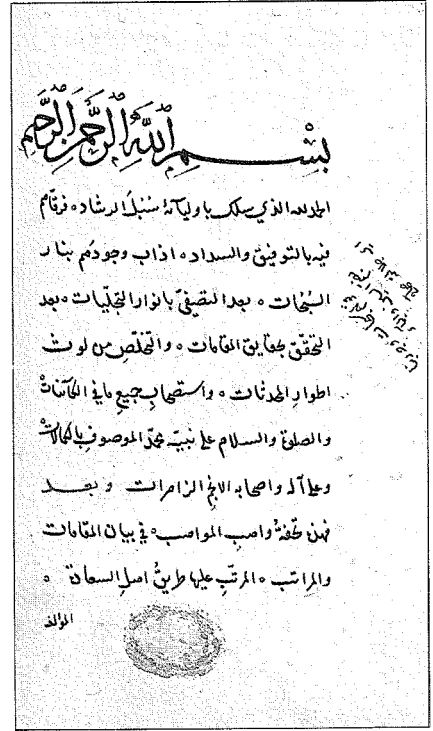 بسم الله الرحمن الرحيم
الحمد لله الذي سلك باوليآئه سُبُلَ الرشاد ۵ فرقّاهم
فيه بالتوفيق والسداد ۵ اذاب وجودهم بنار
السُّبُحات ۵ بعد التصفّي بانوار التجلّيات ۵ بعد
التحقّق بحقايق المقامات ۵ والتخلّص من لوث
اطوار الحدثات ۵ واستصحاب جميع ما في الكآئنات
والصلوة والسلام على نبيّه محمّد الموصوف بالكمالات
وعلى آله واصحابه الانجم الزاهرات وبعد
فهذه تحفة واهب المواهب ۵ في بيان المقامات
والمراتب ۵ المرتّب عليها طريق اهل السعادة ۵